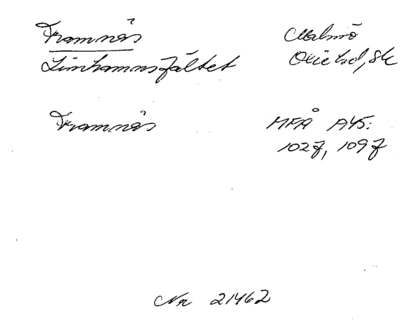 Framnäs Malmö
Limhamnsfältet Oxie hd, Sk
Framnäs MFÅ A45:
102f, 109f
Nr 21462